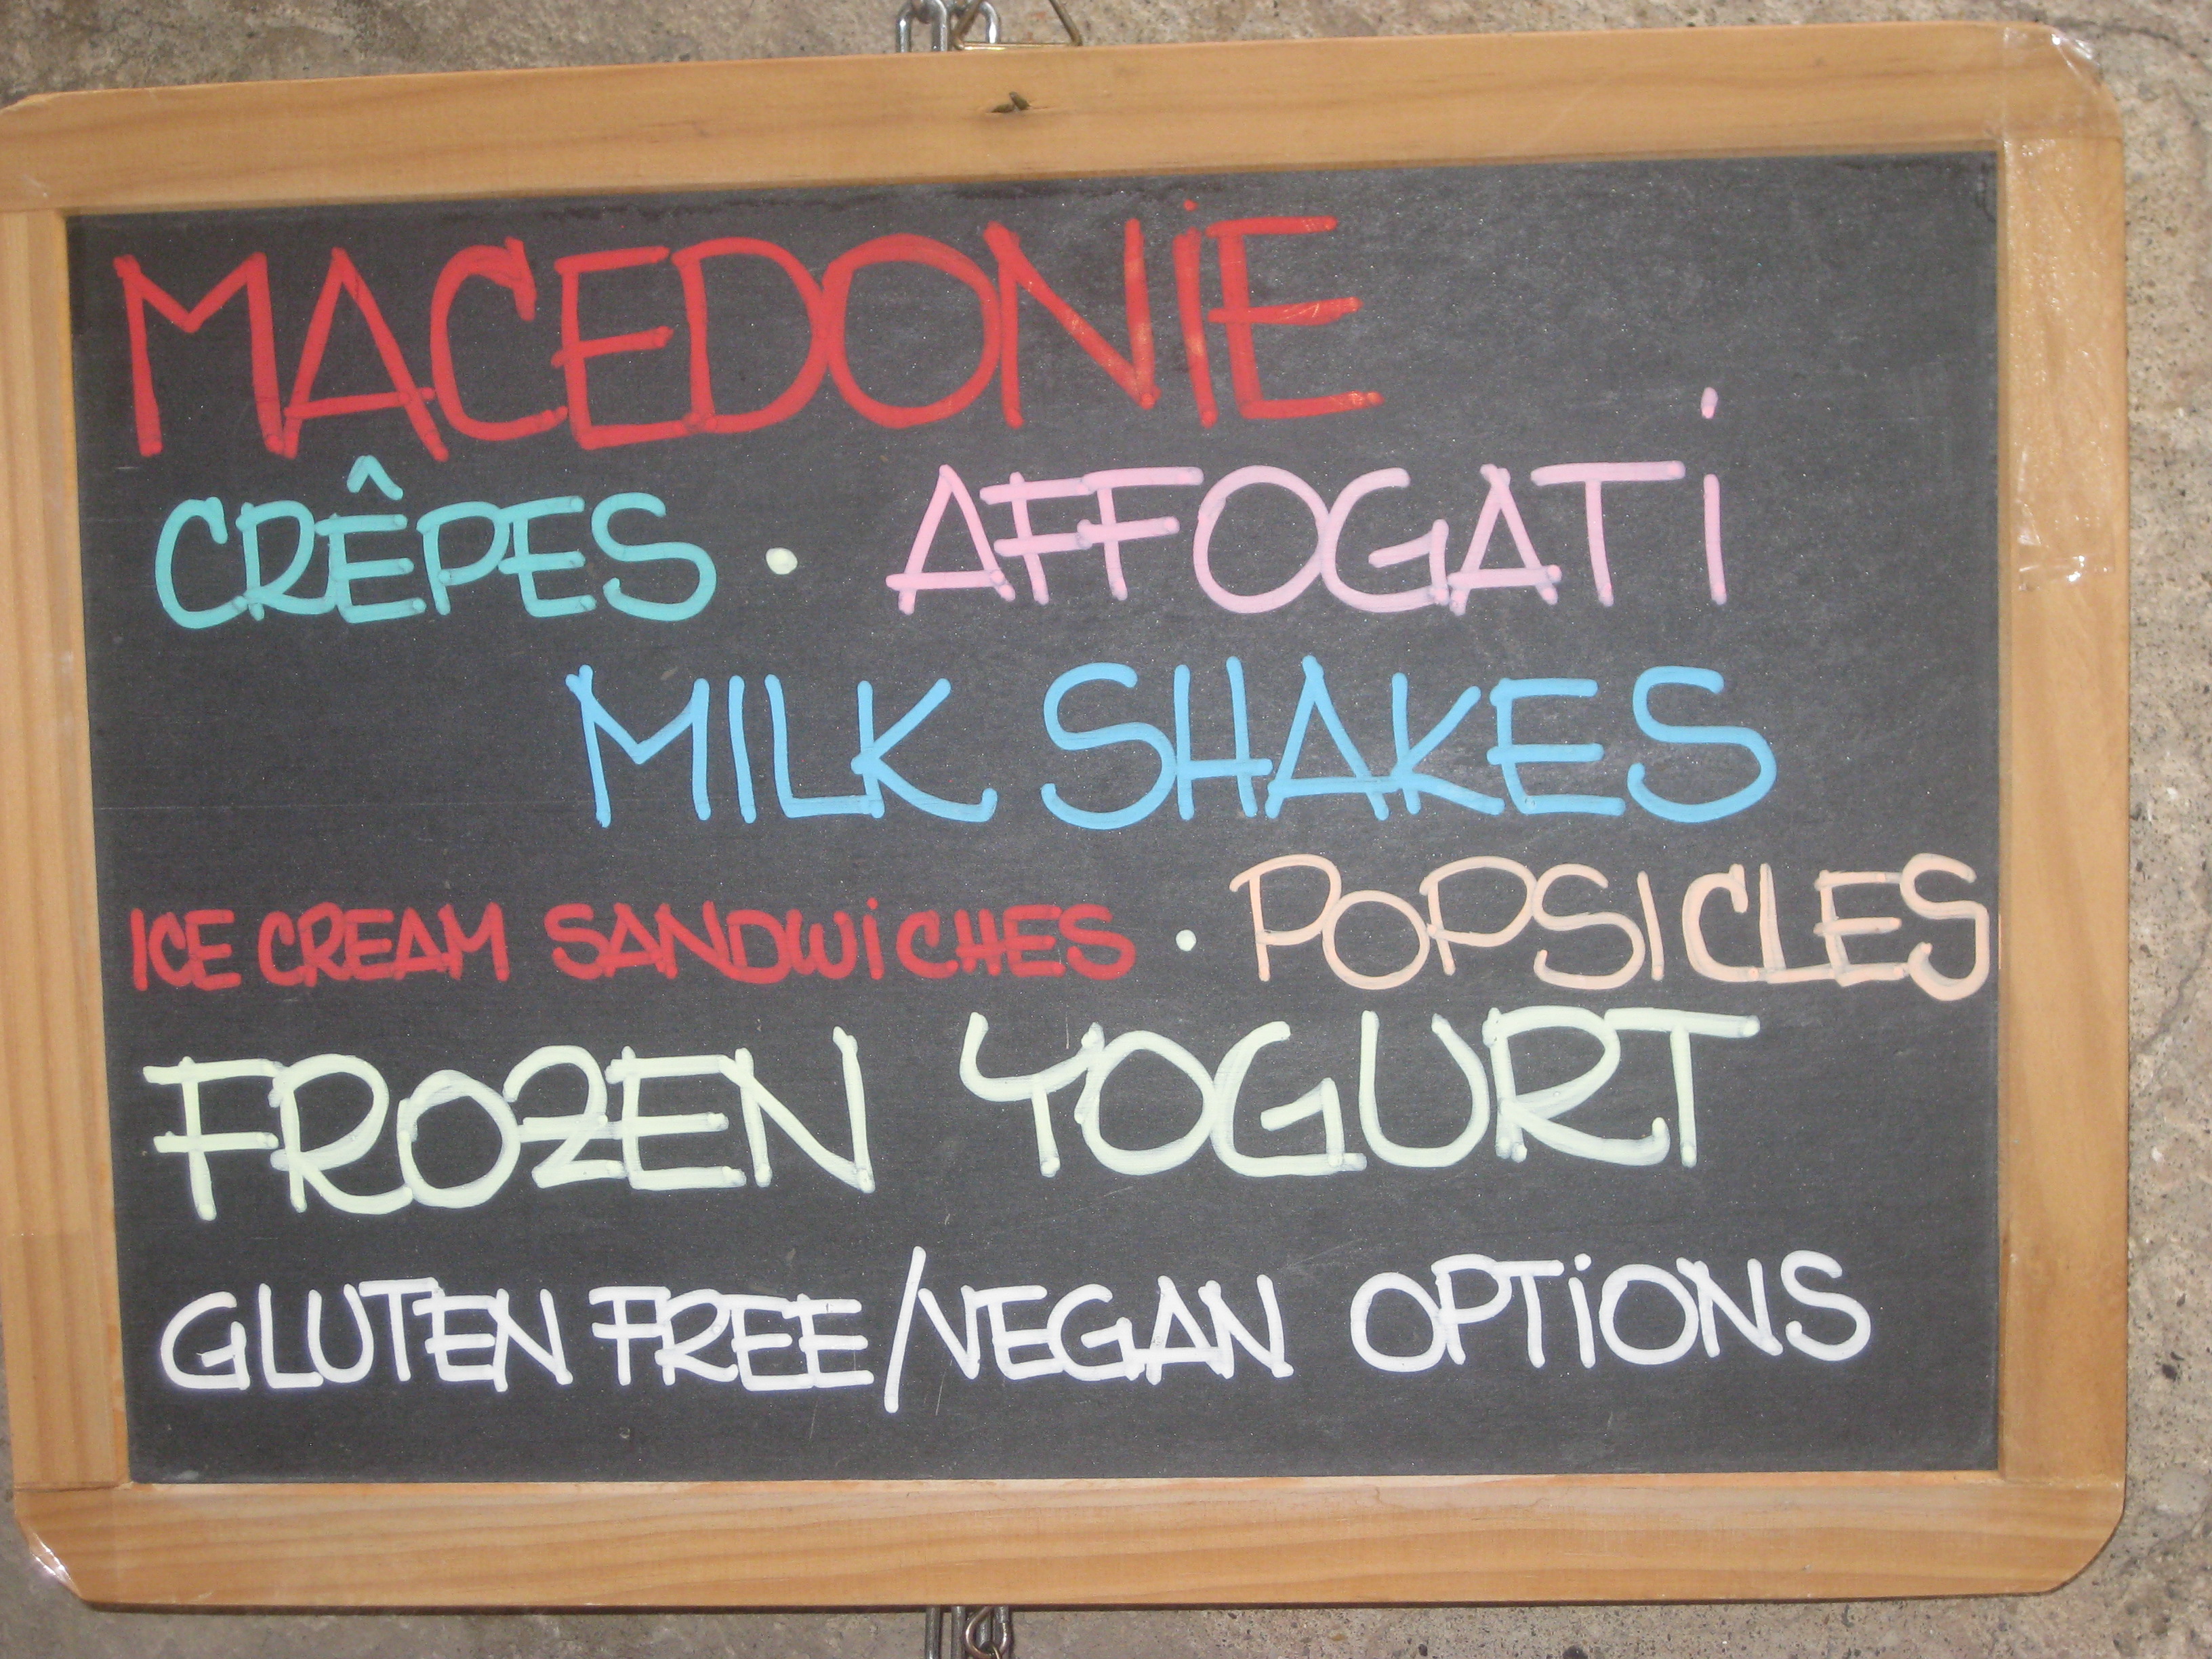 MACEDONIE
CRÊPES · AFFOGATI
MILK SHAKES
ICE CREAM SANDWICHES · POPSICLES
FROZEN YOGURT
GLUTEN FREE/VEGAN OPTIONS